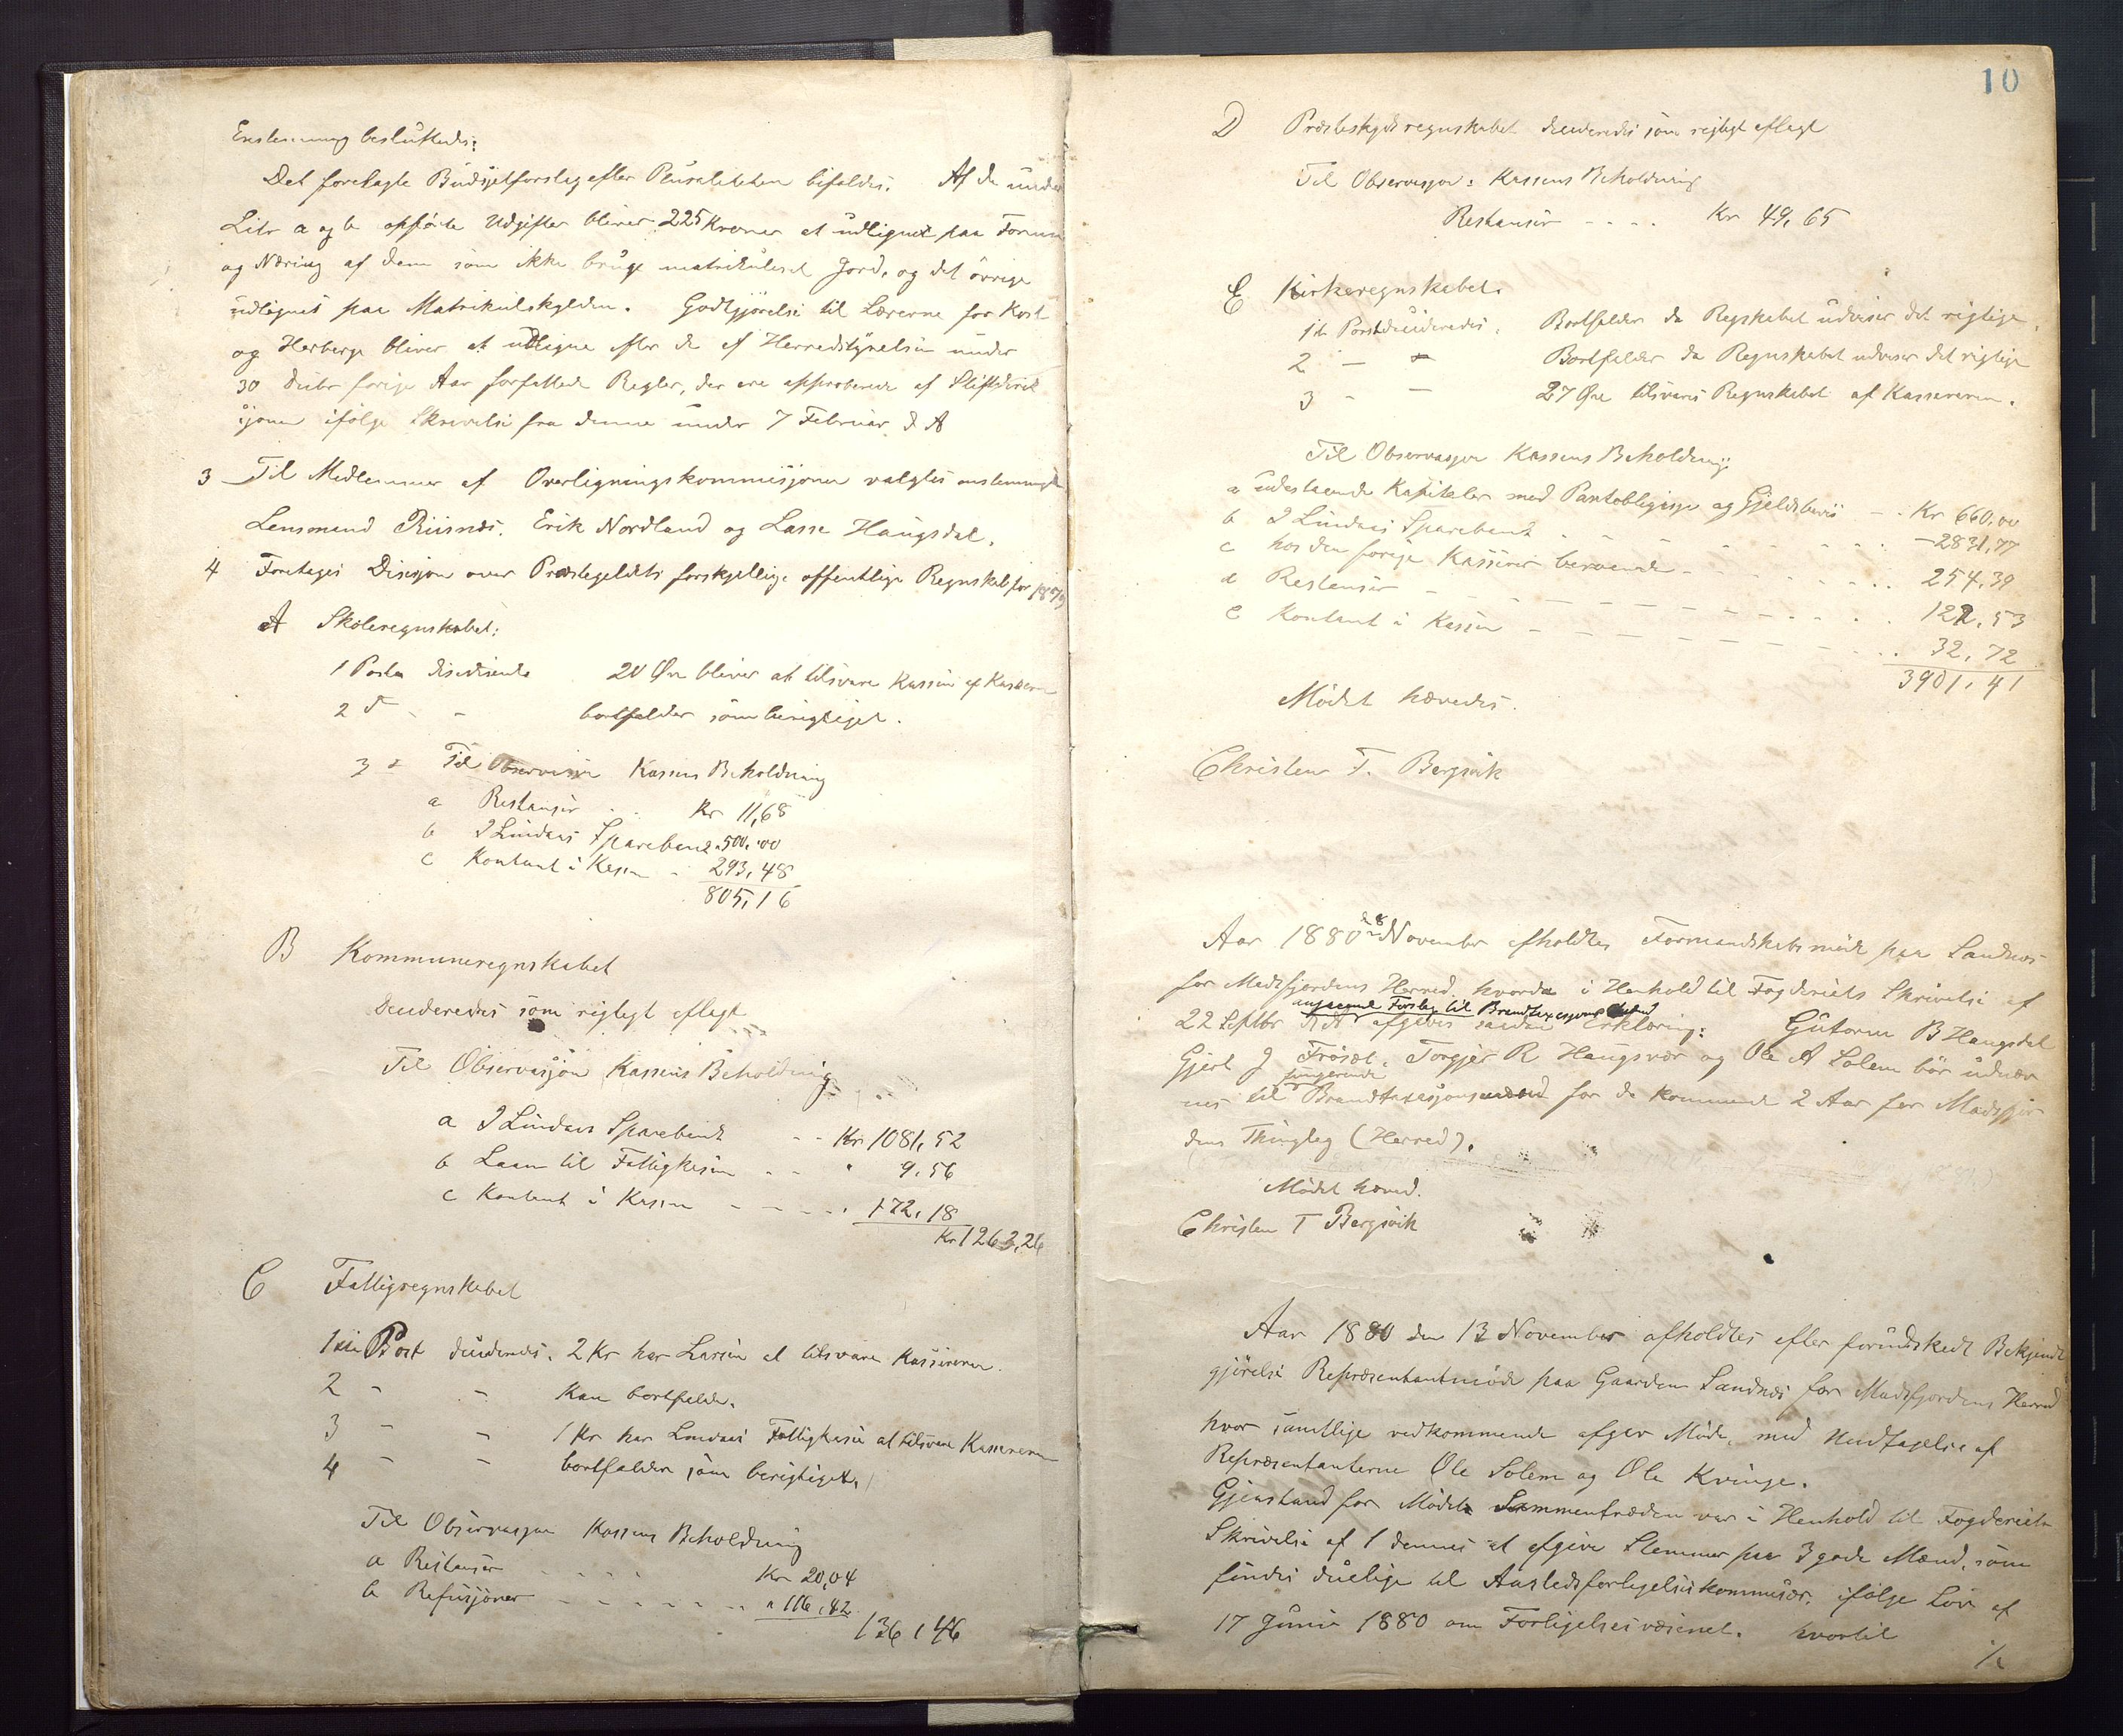 Enstemmig besluttedes:
Det forelagte Budsjetforslag efter Pluraliteten bifaldes. Af de under
Litr a og b opførte Udgifter bliver 225 Kroner at udligne paa Formue
og Næring af dem som ikke bruge matrikuleret Jord, og det övrige
udlignes paa Matrikulskylden. Godtgjörelse til Lærerne for Kost
og Herberge bliver at udligne efter de af Herredstyrelsen under
30 Decbr forige Aar forfattede Regler, der ere approberede af Stiftdirek
sjonen ifølge Skrivelse fra denne under 7 Februar d A
3 Til Medlemmer af Overligningskommisjonen valgtes enstemmigt
Lensmand Riisnæs, Erik Nordland og Lasse Haugsdal.
4 Foretages Decisjon over Præstegeldets forskjellige offentlige Regnskab for 1879
A Skoleregnskabet:
1 Posten deciderede 20 Øre bliver at tilsvare Kassen af Kasseren
2 d - - bortfalder som berigtiget.
3 - Til Observasjon Kassens Beholdning
a Restanser . . Kr 11,68
b I Lindaas Sparebank " 500,00
c Kontant i Kassen - 293,48
805,16
B Kommuneregnskabet
Decideredes som rigtigt aflagt
Til Observasjon Kassens Beholdning
a I Lindaas Sparebank - - Kr 1081,52
b Laan til Fattigkassen - - " 9,56
c Kontant i Kassen - - - - 172,18
Kr 1263,26
C Fattigregnskabet
1ste Post decideredes. 2 Kr har Larsen at tilsvare Kassereren.
2 - - Kan bortfalde.
3 - - 1 Kr har Lindaas Fattigkasse at tilsvare Kassereren
4 - - bortfalder som berigtiget.
Til Observasjon Kassens Beholdning
a Restanser - - - - Kr 20,04
b Refusjoner - - - - - - " 116,42
136,46
10
D Præsteskydsregnskabet decideredes som rigtigt aflagt
Til Observasjon: Kassens Beholdning
Restanser - - - - Kr 49,65
E Kirkeregnskabet.
1ste Post decideredes. Bortfalder da Regnskabet udviser det rigtige.
2 - - Bortfalder da Regnskabet udviser det rigtige
3 - - 27 Øre tilsvares Regnskabet af Kassereren.
Til Observasjon Kassens Beholdning
a udestaaende Kapitaler mod Pantobligasjon og Gjeldsbevis - - Kr 660,00
b I Lindaas Sparebank - - - - - 2831,77
c hos den forige Kasserer beroende - - - - - 254,39
d Restanser - - - - - 122,53
e Kontant i Kassen - - - - - 32,72
3901,41
Mödet hævedes.
Christen T. Bergsvik
Aar 1880 d 8 November afholdtes Formandskabsmöde paa Sandnes
for Masfjordens Herred, hvorda i Henhold til Fogderiets Skrivelse af
angaaende Forslag til Brandtaxasjonsmænd
22 Septbr d A afgives saadan Erklæring: Gutorm B Haugsdal
Gjert J Frösæt, Torgjer R Haugsvær og Ole A Solem bör udnæv
fungerende
nes til Brandtaxasjonsmænd for de kommende 2 Aar for Masfjor
dens Thinglag (Herred).
Mödet hæved.
Christen T Bergsvik
Aar 1880 den 13 November afholdtes efter forudskedt Bekjendt
gjörelse Repræsentantmöde paa Gaarden Sandnæs for Masfjordens Herred
hvor samtlige vedkommende afgav Möde, med Undtagelse af
Repræsentanterne Ole Solem og Ole Kvinge.
Gjenstand for Mödets Sammentræden var i Henhold til Fogderiets
Skrivelse af 1 dennes at afgive Stemmer paa 3 gode Mænd, som
findes duelige til Anstedsforligelseskommisær, ifølge Lov af
17 Juni 1880 om Forligelsesvæsenet. hvortil